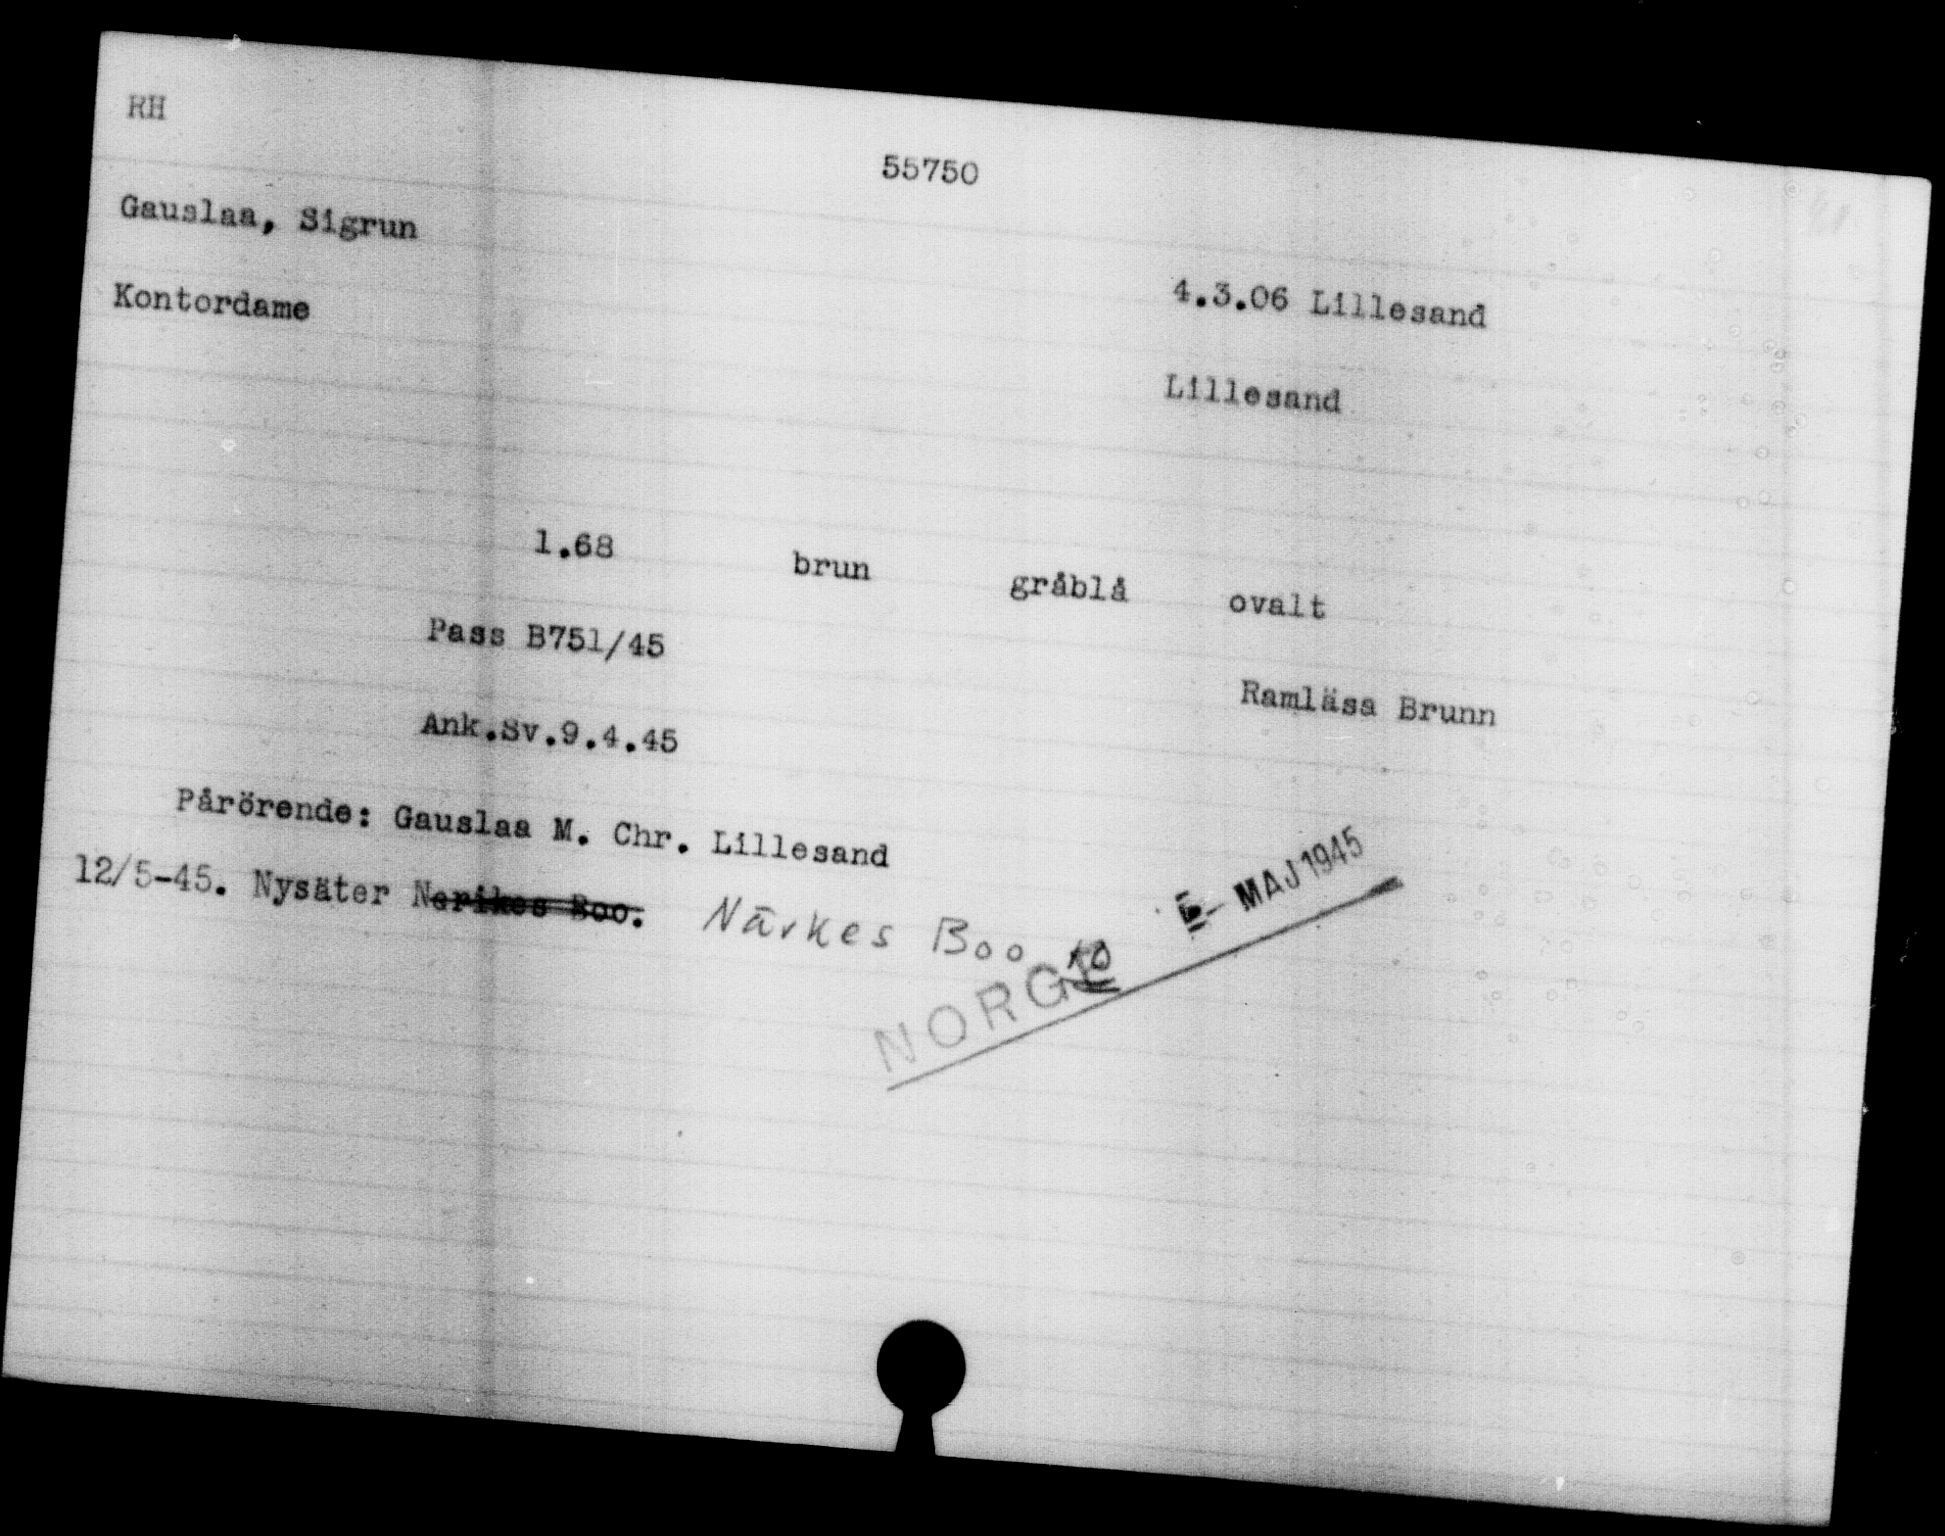 RH
55750
Gauslaa, Sigrun
4.3.06 Lillesand
Kontordame
Lillesand
1.68 brun gråblå ovalt
Pass B751/45
Ramläsa Brunn
Ank.Sv.9.4.45
Pårörende: Gauslaa M. Chr. Lillesand
12/5-45. Nysäter Nerikes Boo. Närkes Boo
MAJ 1945
10
NORGE